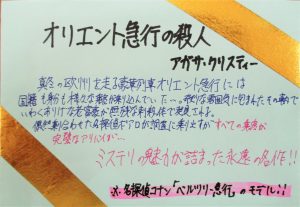 オリエント急行の殺人
アガサ・クリスティー
真冬の欧州を走る豪華列車オリエント急行には
国籍も様々な乗客が乗り込んでいた…。奇妙な雰囲気に包まれたその車内で
いわくありげな老富豪が無残な刺殺体で発見される。
偶然乗り合わせた名探偵ポアロが調査に乗り出すがすべての乗客が
完璧なアリバイが…
ミステリの魅力が詰まった永遠の名作!!
※名探偵コナン「ベルツリー急行」のモデル!!